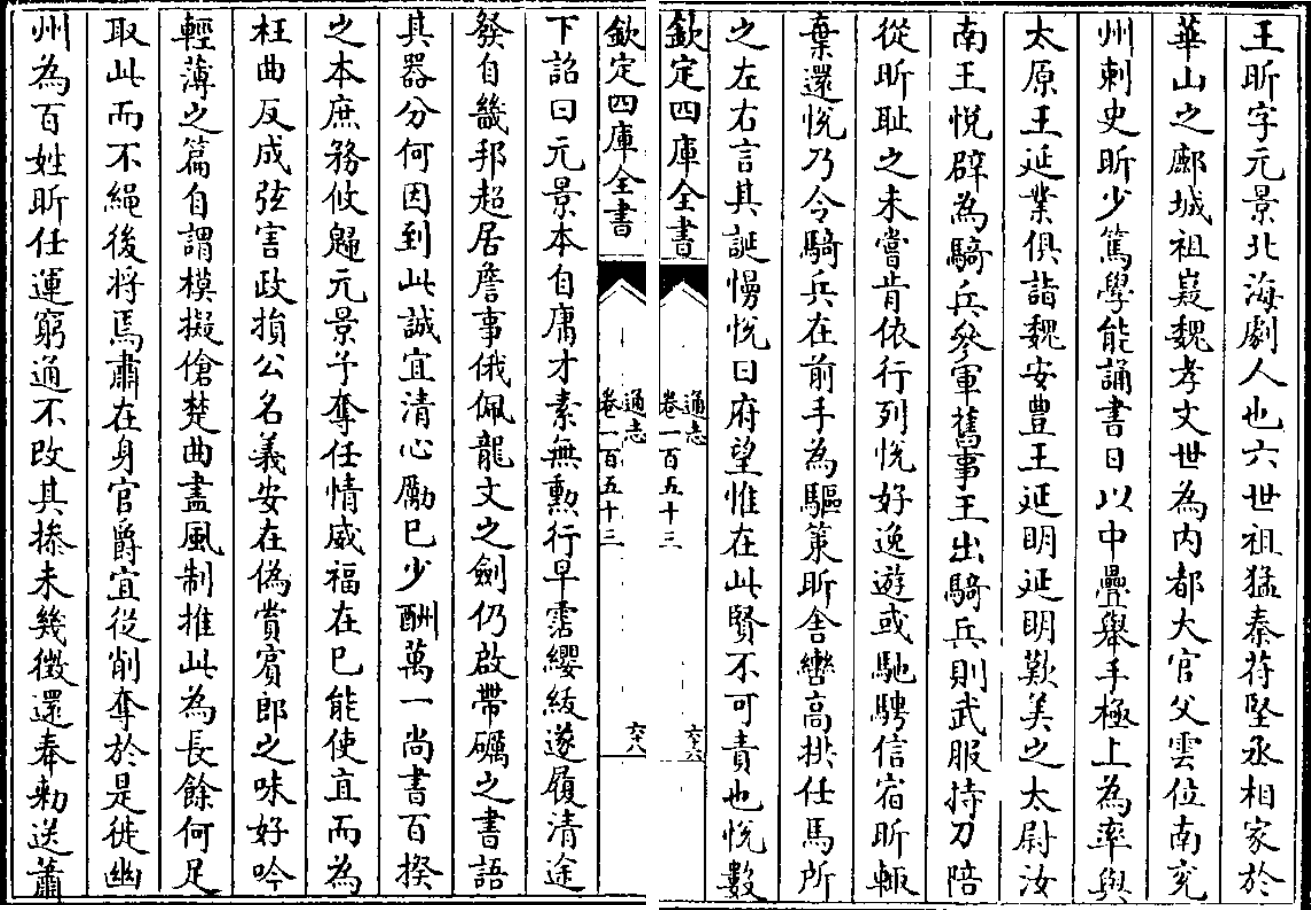 王昕字元景北海劇人也六世祖猛秦苻堅丞相家於
華山之鄜城祖嶷魏孝文世為内都大官父雲位南兖
州刺史昕少篤學能誦書日以中疊舉手極上為率與
太原王延業俱詣魏安豊王延明延明歎美之太尉汝
南王悦辟為騎兵參軍舊事王出騎兵則武服持刀陪
從昕耻之未嘗肯依行列悦好逸遊或馳騁信宿昕輙
棄還悦乃令騎兵在前手為驅策昕舍轡高拱任馬所
之左右言其誕慢悦曰府望惟在此賢不可責也悦數
欽定四庫全書
通志
卷一百五十三
六六
欽定四庫全書
通志
卷一百五十三
六八
下詔曰元景本自庸才素無勲行早霑纓紱遂履清途
發自畿邦超居詹事俄佩龍文之劍仍啟帶礪之書語
其器分何因到此誠宜清心勵已少酬萬一尚書百揆
之本庶務攸歸元景予奪任情威福在已能使直而為
枉曲反成弦害政損公名義安在偽賞賓郎之味好吟
輕薄之篇自謂模擬傖楚曲盡風制推此為長餘何足
取此而不繩後將焉肅在身官爵宜從削奪於是徙幽
州為百姓昕任運窮通不改其操未幾徴還奉勑送蕭